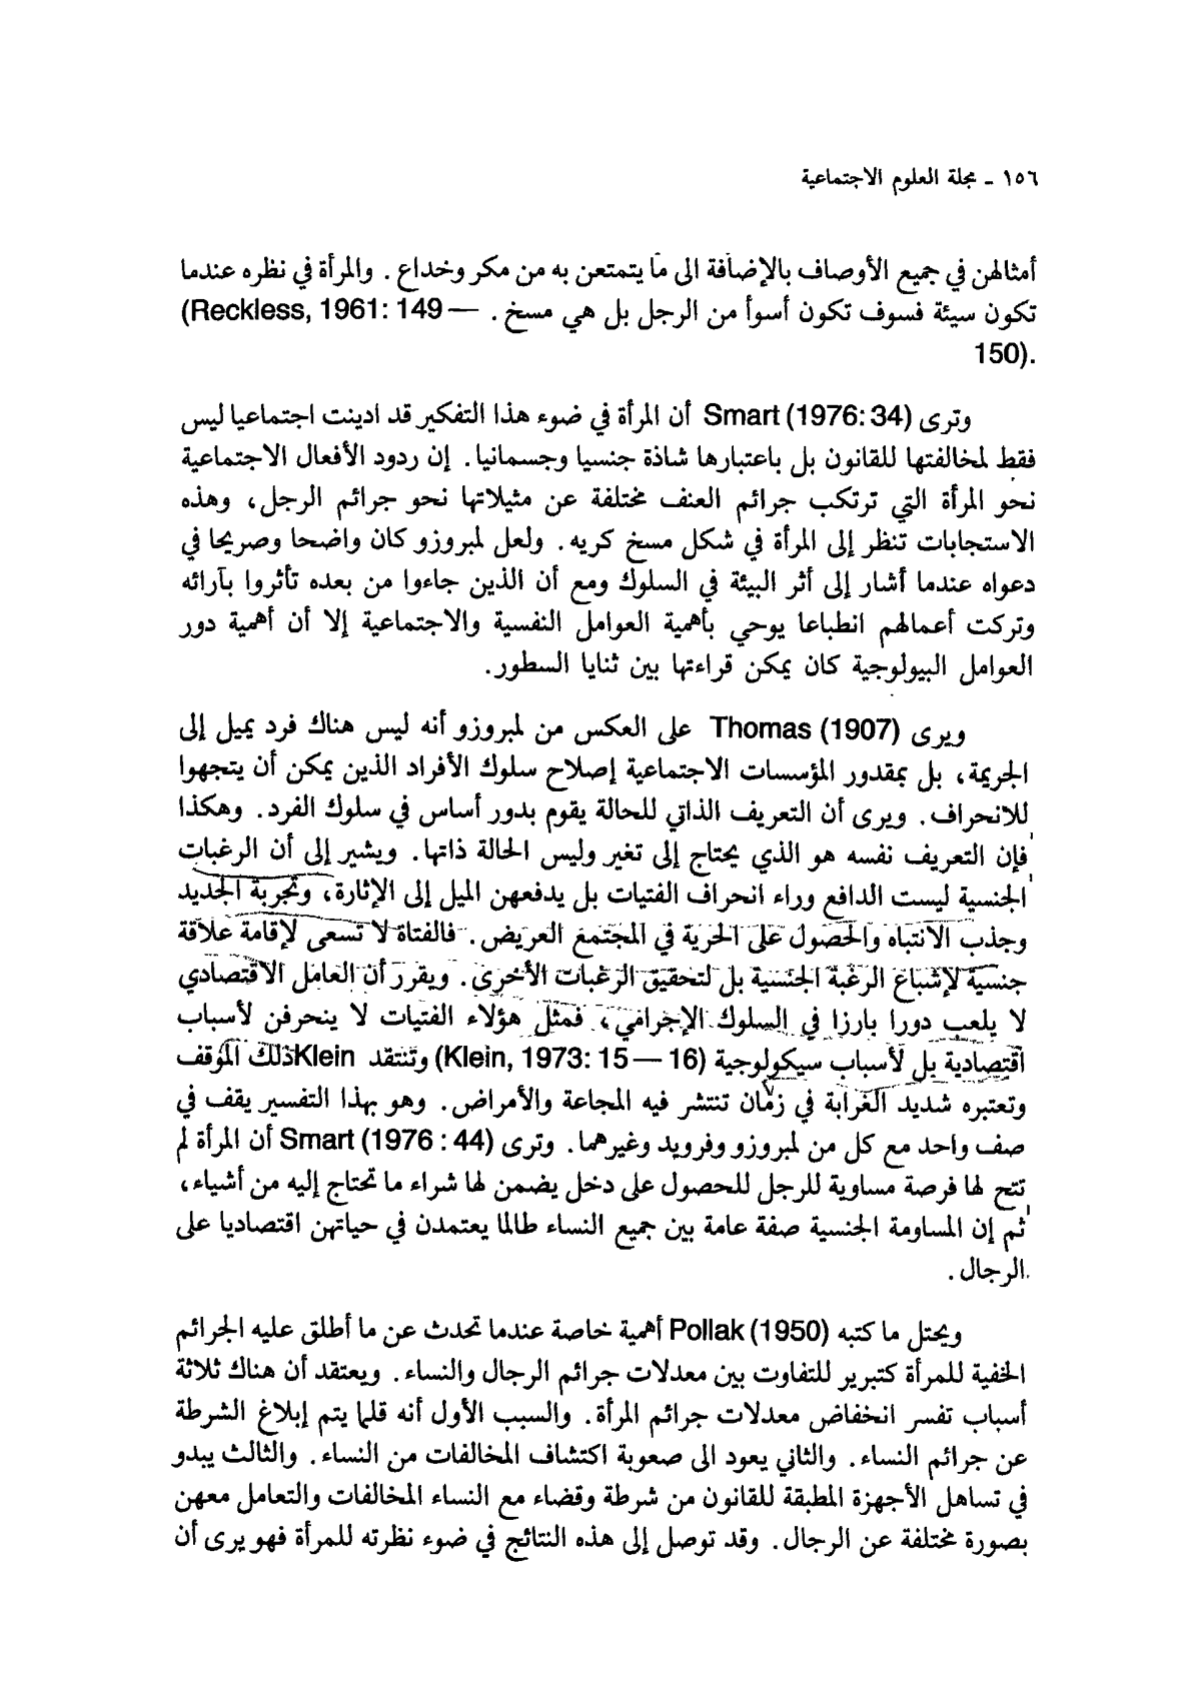 ١٥٦ ـ مجلة العلوم الاجتماعية
أمثالهن في جميع الأوصاف بالإضافة الى ما يتمتعن به من مكر وخداع . والمرأة في نظره عندما
تكون سيئة فسوف تكون أسوأ من الرجل بل هي مسخ . (Reckless, 1961: 149 —
150).
وترى Smart (1976: 34) أن المرأة في ضوء هذا التفكير قد ادينت اجتماعيا ليس
فقط لمخالفتها للقانون بل باعتبارها شاذة جنسيا وجسمانيا . إن ردود الأفعال الاجتماعية
نحو المرأة التي ترتكب جرائم العنف مختلفة عن مثيلاتها نحو جرائم الرجل ، وهذه
الاستجابات تنظر إلى المرأة في شكل مسخ كريه . ولعل لمبروزو كان واضحا وصريحا في
دعواه عندما أشار إلى أثر البيئة في السلوك ومع أن الذين جاءوا من بعده تأثروا بآرائه
وتركت أعمالهم انطباعا يوحي بأهمية العوامل النفسية والاجتماعية إلا أن أهمية دور
العوامل البيولوجية كان يمكن قراءتها بين ثنايا السطور .
ويرى Thomas (1907) على العكس من لمبروزو أنه ليس هناك فرد يميل إلى
الجريمة ، بل بمقدور المؤسسات الاجتماعية إصلاح سلوك الأفراد الذين يمكن أن يتجهوا
للانحراف . ويرى أن التعريف الذاتي للحالة يقوم بدور أساس في سلوك الفرد . وهكذا
فإن التعريف نفسه هو الذي يحتاج إلى تغير وليس الحالة ذاتها . ويشير إلى أن الرغبات
الجنسية ليست الدافع وراء انحراف الفتيات بل يدفعهن الميل إلى الإثارة ، وتجربة الجديد
وجذب الانتباه والحصول على الحرية في المجتمع العريض . فالفتاة لا تسعى لإقامة علاقة
جنسية لإشباع الرغبة الجنسية بل لتحقيق الرغبات الأخرى . ويقرر أن العامل الاقتصادي
لا يلعب دورا بارزا في السلوك الإجرامي ، فمثل هؤلاء الفتيات لا ينحرفن لأسباب
اقتصادية بل لأسباب سيكولوجية (Klein, 1973: 15 — 16) وتنتقد Klein ذلك الموقف
وتعتبره شديد الغرابة في زمان تنتشر فيه المجاعة والأمراض . وهو بهذا التفسير يقف في
صف واحد مع كل من لمبروزو وفرويد وغيرهما . وترى Smart (1976 : 44) أن المرأة لم
تتح لها فرصة مساوية للرجل للحصول على دخل يضمن لها شراء ما تحتاج إليه من أشياء ،
ثم إن المساومة الجنسية صفة عامة بين جميع النساء طالما يعتمدن في حياتهن اقتصاديا على
الرجال .
ويحتل ما كتبه Pollak (1950) أهمية خاصة عندما تحدث عن ما أطلق عليه الجرائم
الخفية للمرأة كتبرير للتفاوت بين معدلات جرائم الرجال والنساء . ويعتقد أن هناك ثلاثة
أسباب تفسر انخفاض معدلات جرائم المرأة . والسبب الأول أنه قلما يتم إبلاغ الشرطة
عن جرائم النساء . والثاني يعود الى صعوبة اكتشاف المخالفات من النساء . والثالث يبدو
في تساهل الأجهزة المطبقة للقانون من شرطة وقضاء مع النساء المخالفات والتعامل معهن
بصورة مختلفة عن الرجال . وقد توصل إلى هذه النتائج في ضوء نظرته للمرأة فهو يرى أن